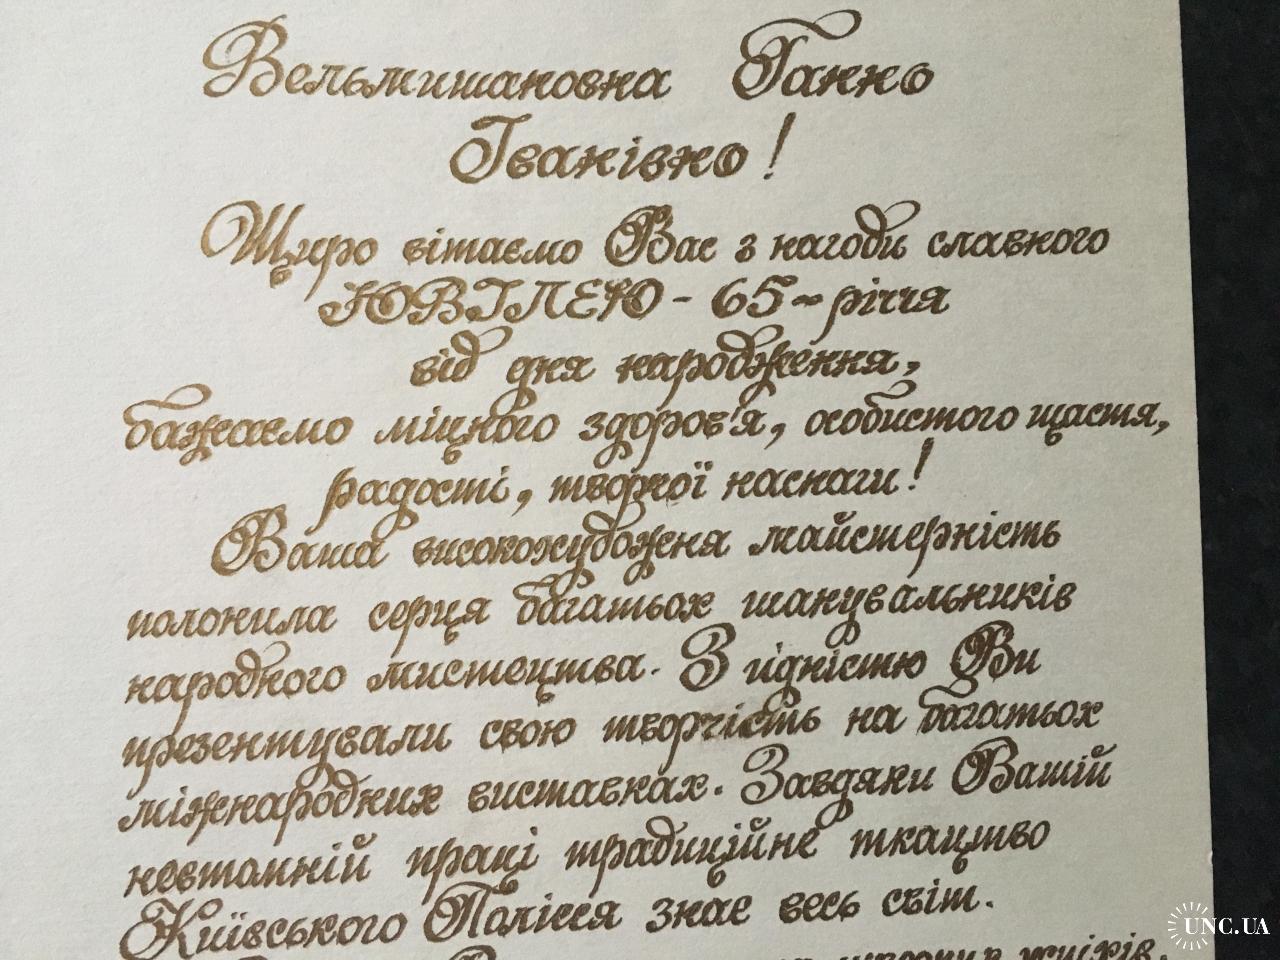 Вельмишановна Ганно
Іванівно!
Щиро вітаємо Вас з нагоди славного
ЮВІЛЕЮ - 65 - річчя
від дня народження,
бажаємо міцного здоров'я, особистого щастя,
радості, творчої наснаги!
Ваша високохудожня майстерність
полонила серця багатьох шанувальників
народного мистецтва. З гідністю Ви
презентували свою творчість на багатьох
міжнародних виставках. Завдяки Вашій
невтомній праці традиційне ткацтво
Київського Полісся знає весь світ.
успіхів,
UNC.UA